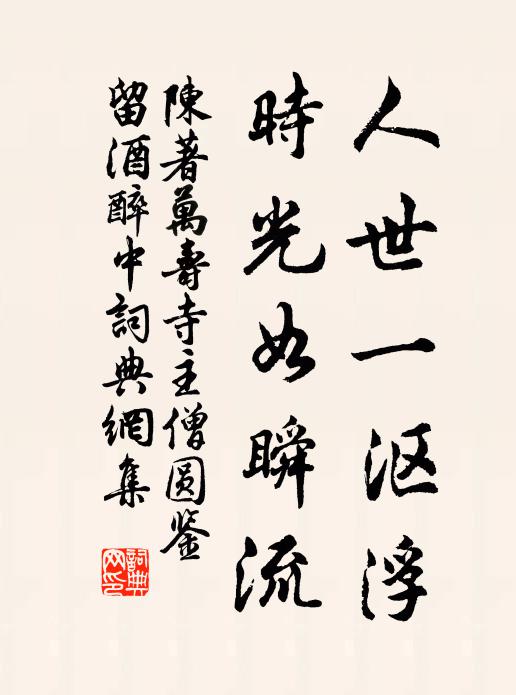 人世一漚浮
時光如瞬流
陳著萬壽寺主僧圓鉴
留酒醉中詞典網集
詞典网印